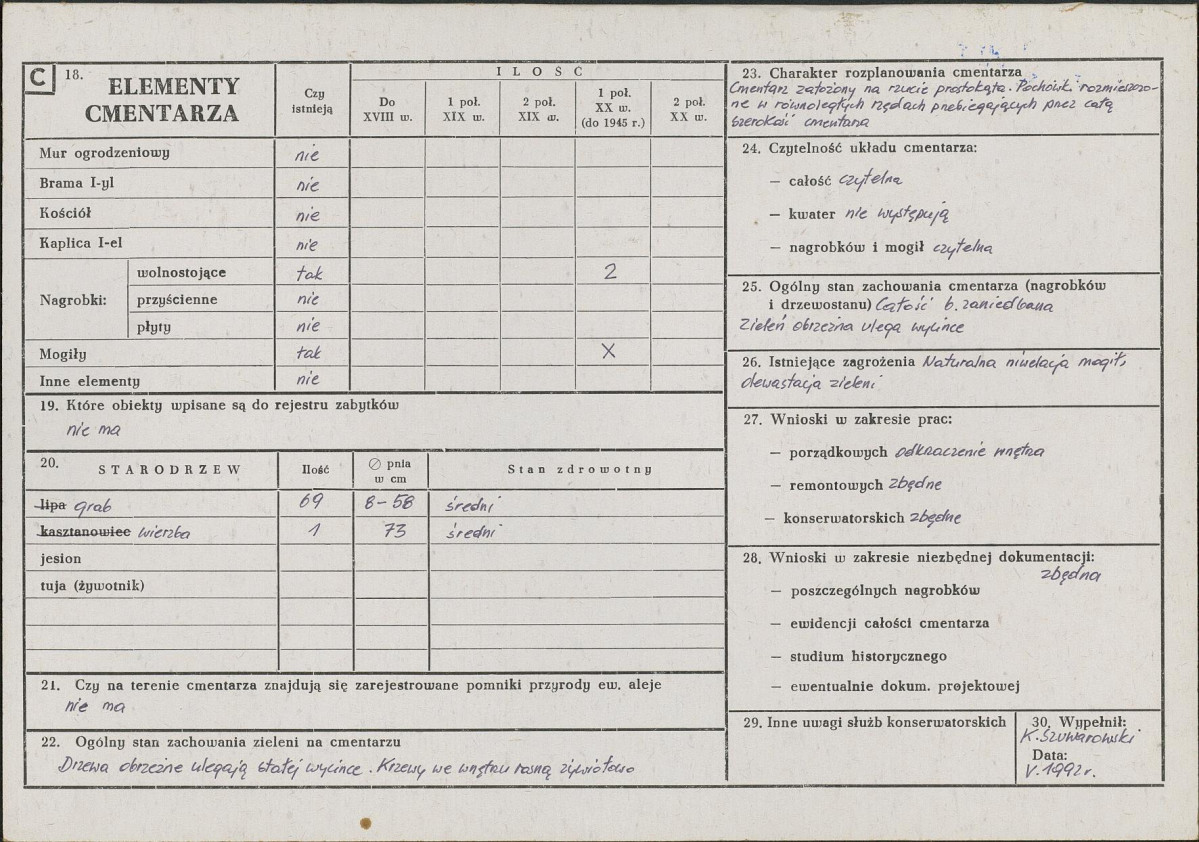 C 18. ELEMENTY CMENTARZA
Czy istnieją
ILOŚĆ
Do XVIII w.
1 poł. XIX w.
2 poł. XIX w.
1 poł. XX w. (do 1945 r.)
2 poł. XX w.
Mur ogrodzeniowy nie
Brama I-yl nie
Kościół nie
Kaplica I-el nie
Nagrobki:
wolnostojące tak 2
przyścienne nie
płyty nie
Mogiły tak X
Inne elementy nie
19. Które obiekty wpisane są do rejestru zabytków
nie ma
20. STARODRZEW Ilość ∅ pnia w cm Stan zdrowotny
lipa grab 69 8-58 średni
kasztanowiec wierzba 1 73 średni
jesion
tuja (żywotnik)
21. Czy na terenie cmentarza znajdują się zarejestrowane pomniki przyrody ew. aleje
nie ma
22. Ogólny stan zachowania zieleni na cmentarzu
Drzewa obrzeżne ulegają stałej wycince. Krzewy we wnętrzu rosną żywiołowo
23. Charakter rozplanowania cmentarza
Cmentarz założony na rzucie prostokąta. Pochówki rozmieszczo-
ne w równoległych rzędach przebiegających przez całą
szerokość cmentarza
24. Czytelność układu cmentarza:
— całość czytelna
— kwater nie występują
— nagrobków i mogił czytelna
25. Ogólny stan zachowania cmentarza (nagrobków
i drzewostanu) Całość b. zaniedbana
Zieleń obrzeżna ulega wycince
26. Istniejące zagrożenia Naturalna niwelacja mogił,
dewastacja zieleni
27. Wnioski w zakresie prac:
— porządkowych odkrzaczenie wnętrza
— remontowych zbędne
— konserwatorskich zbędne
28. Wnioski w zakresie niezbędnej dokumentacji:
zbędna
— poszczególnych nagrobków
— ewidencji całości cmentarza
— studium historycznego
— ewentualnie dokum. projektowej
29. Inne uwagi służb konserwatorskich
30. Wypełnił:
K. Szuwarowski
Data:
V. 1992 r.